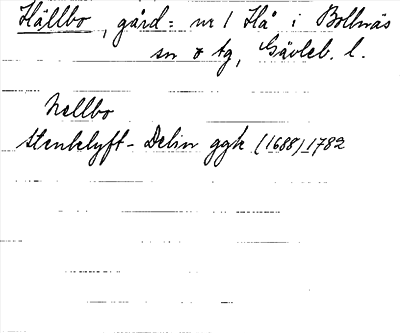 Hällbo, gård: nr 1 Hå i Bollnäs
sn o tg, Gävleb. l.
Hellbo
Stenklyft-Delin ggk (1688) 1782